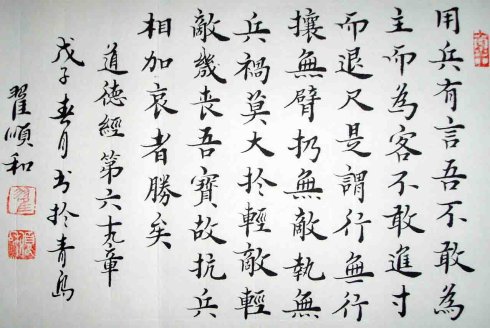 用兵有言吾不敢為
主而為客不敢進寸
而退尺是謂行無行
攘無臂扔無敵執無
兵禍莫大於輕敵輕
敵幾喪吾寶故抗兵
相加哀者勝矣
道德經第六十九章
戊子春月书於青島
翟順和